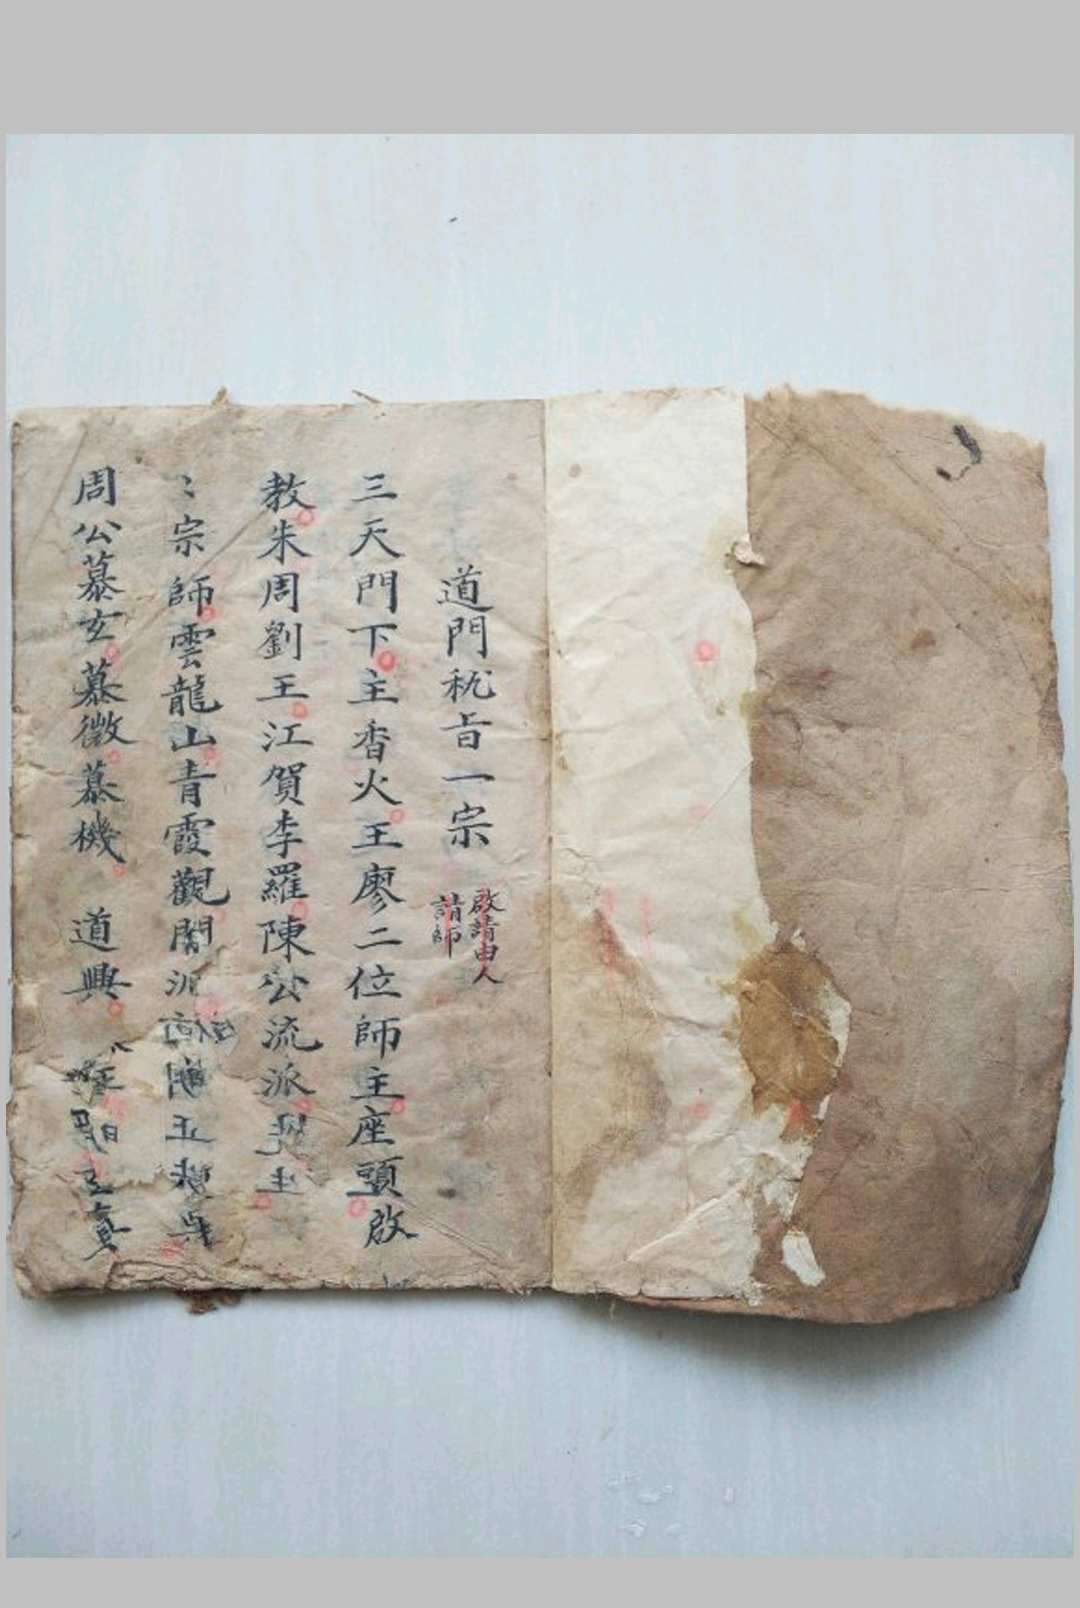 道門秘旨一宗
啟請由人
請師
三天門下主香火王廖二位師主座頭啟
教朱周劉王江賀李羅陳公流派
宗師雲龍山青霞觀闡派 正
周公慕玄慕微慕機 道興